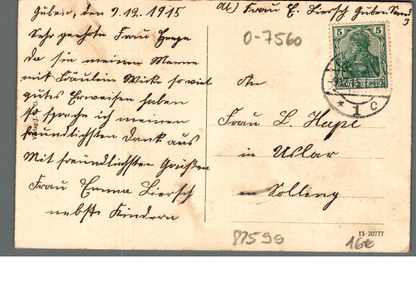 Guben, den 9.12.1915
Sehr geehrte Frau Hupe
da sie meinem Manne
mit Fräulein Mieke so viel
gutes Erweisen haben
so spreche ich meinen
freundlichsten Dank aus
Mit freundlichsten Grüßen
Frau Emma Liersch
nebste Kindern
Abs) Frau E. Liersch Guben
0-7560
5 5
An
Frau L. Hupe
in Uslar
Solling
1 c
82599
16€
15 20777